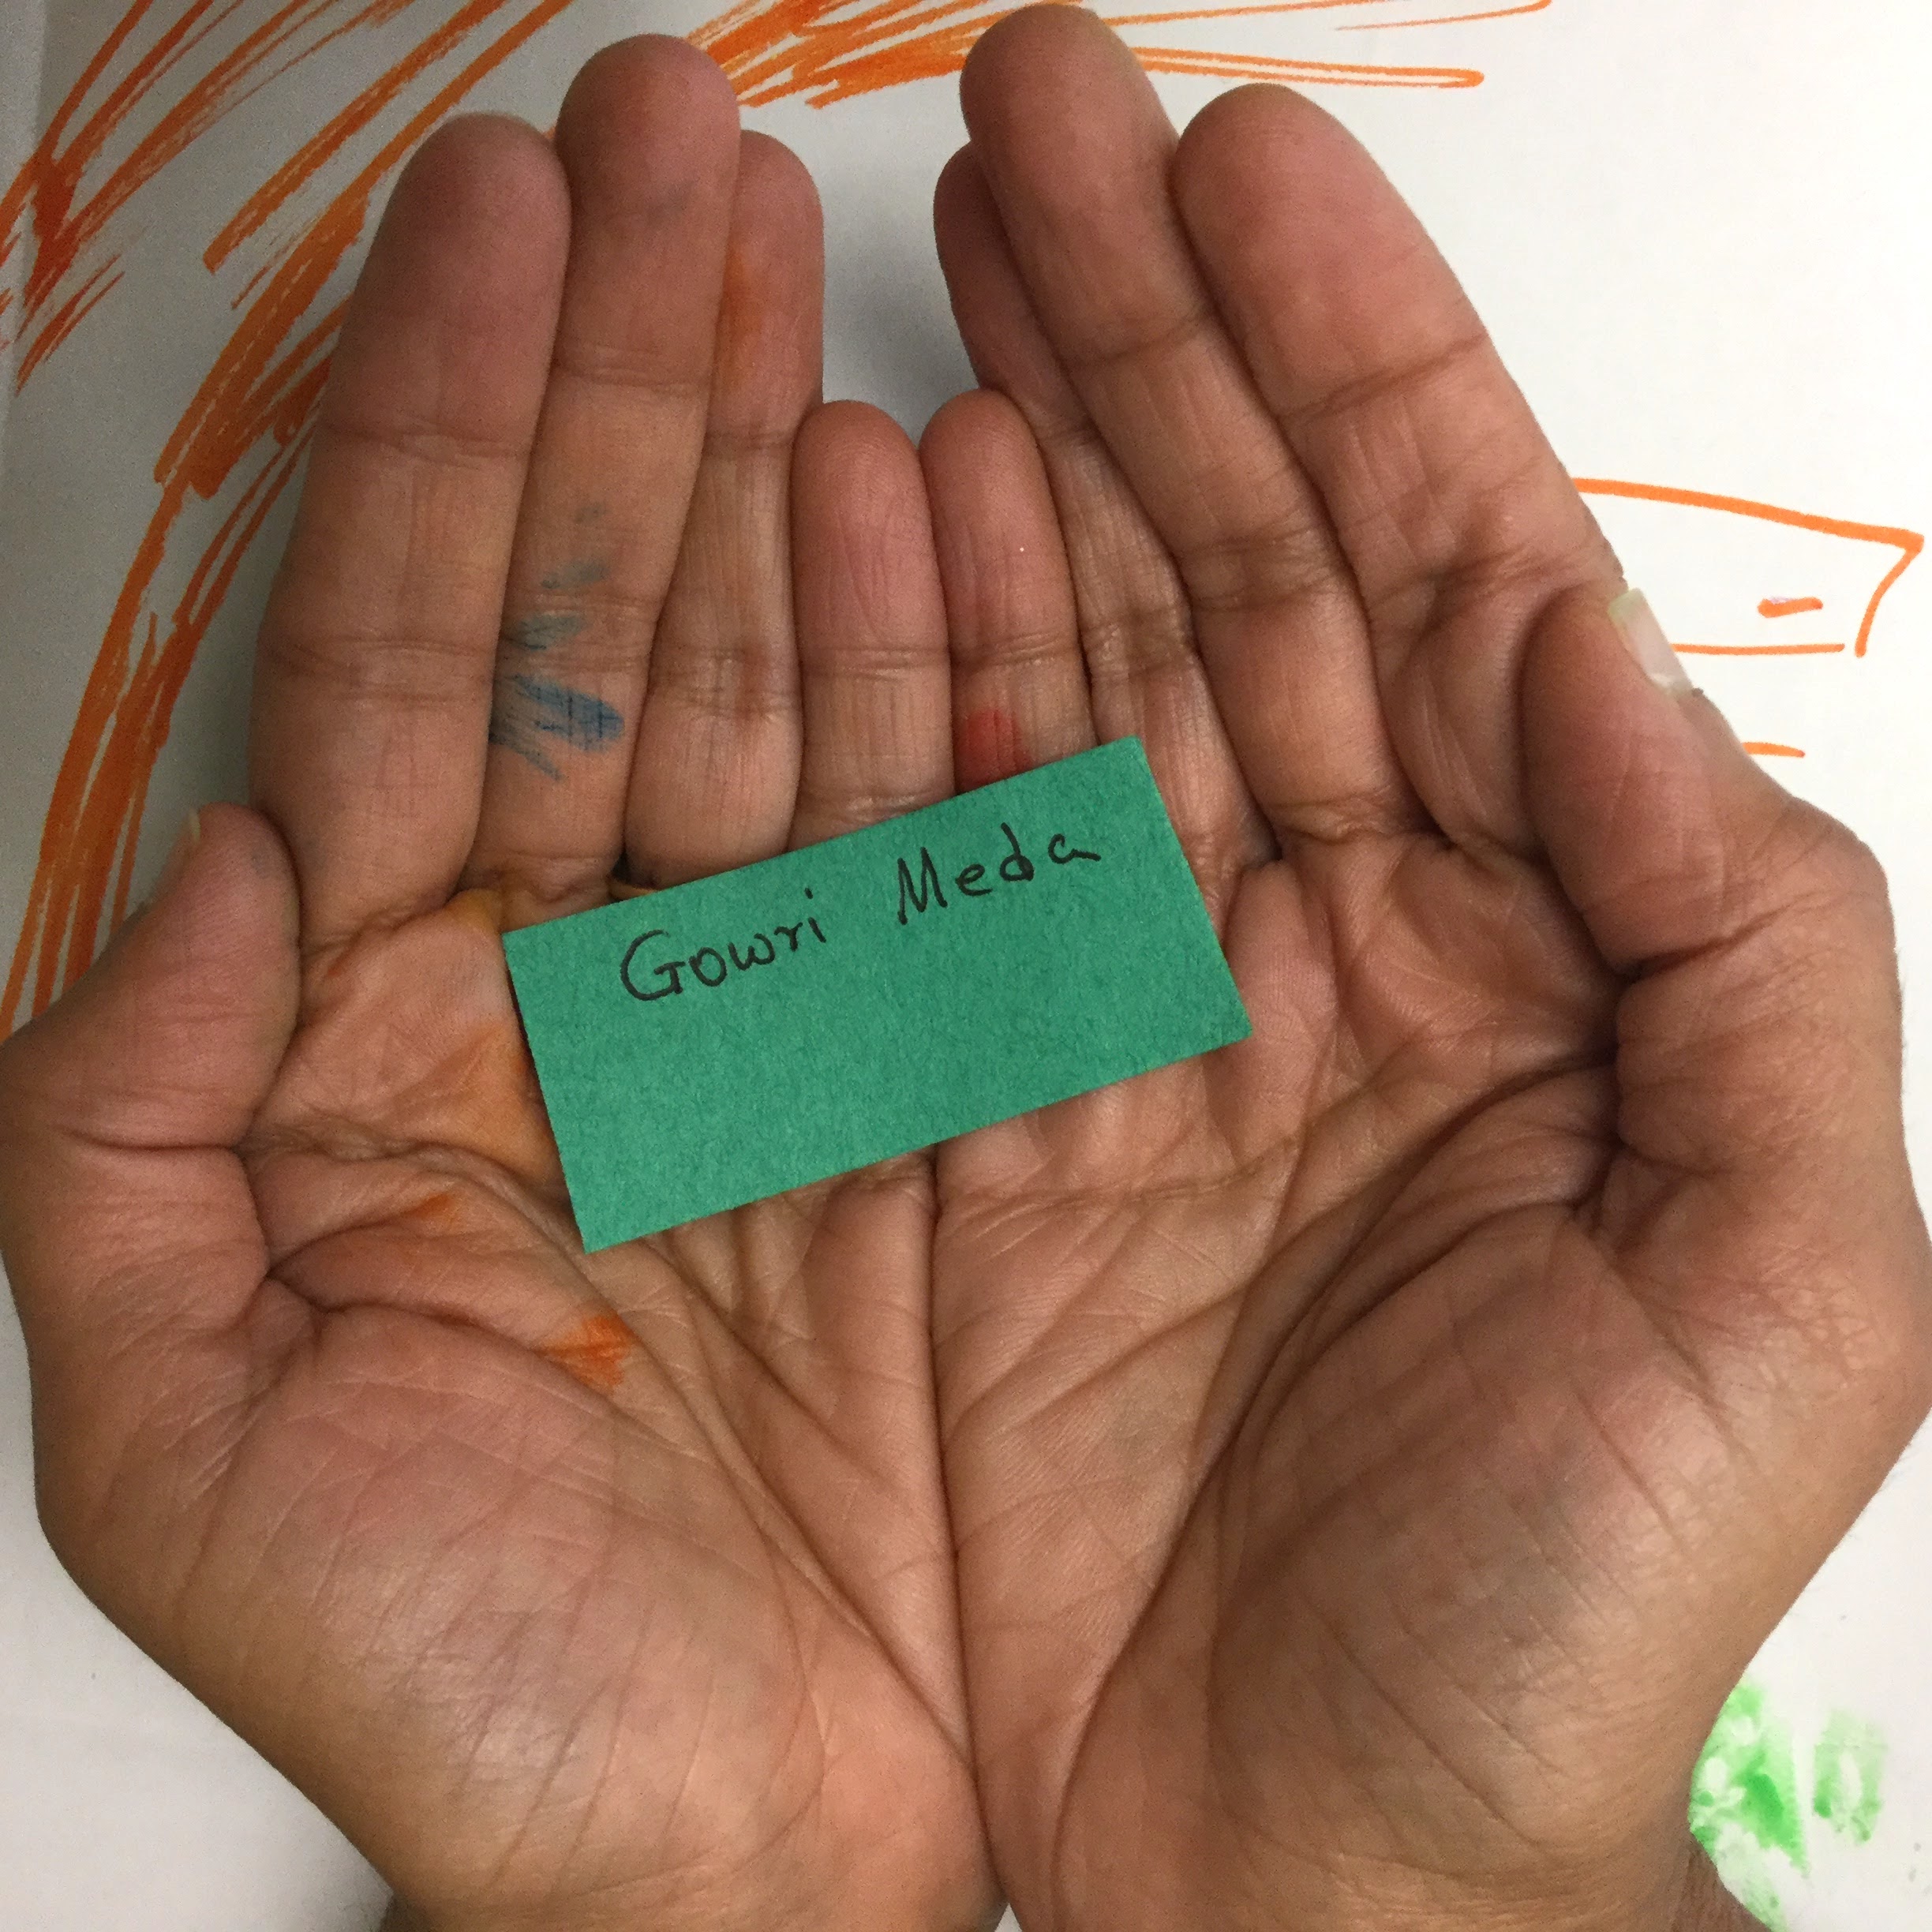 Gowri Meda